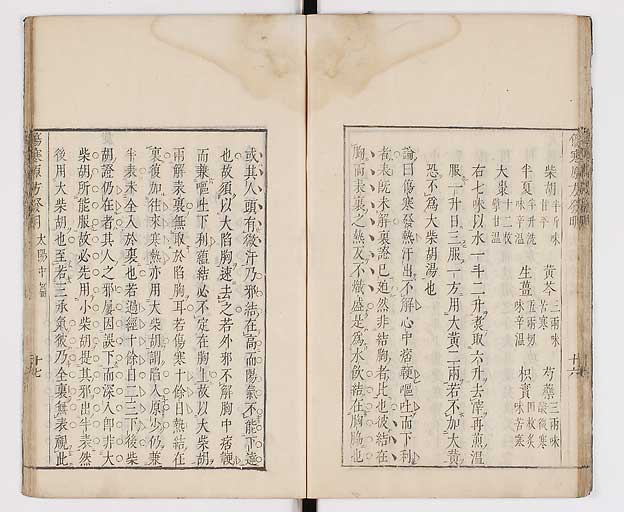 柴胡半斤味甘平 黃芩三兩味苦寒 芍藥三兩味酸微寒
半夏半升洗味辛溫 生薑五兩切味辛溫 枳實四枚炙味苦寒
大棗十二枚擘甘溫
右七味以水一斗二升煮取六升去滓再煎溫
服一升日三服一方用大黃二兩若不加大黃
恐不為大柴胡湯也
論曰傷寒發熱汗出不解心中痞鞕嘔吐而下利
者表既未解裏證已迫然非結胸者比也彼結在
胸而表裏之熱反不熾盛是為水飲結在胸脇也
十六
或其人頭有微汗乃邪結在高而陽氣不能下達
也故須以大陷胸速去之若外邪不解胸中痞鞕
而兼嘔吐下利雖結必不定在胸上故以大柴胡
兩解表裏無取於陷胸耳若傷寒十餘日熱結在
裏復加往來寒熱亦用大柴胡謂陷入原少仍兼
半表未全入於裏也若過經十餘日二三下後柴
胡證仍在者其人之邪屢因誤下而深入卽非大
柴胡所能服故必先用小柴胡提其邪出半表然
後用大柴胡也至若三承氣彼乃全裏無表覷此
太陽中篇
十七